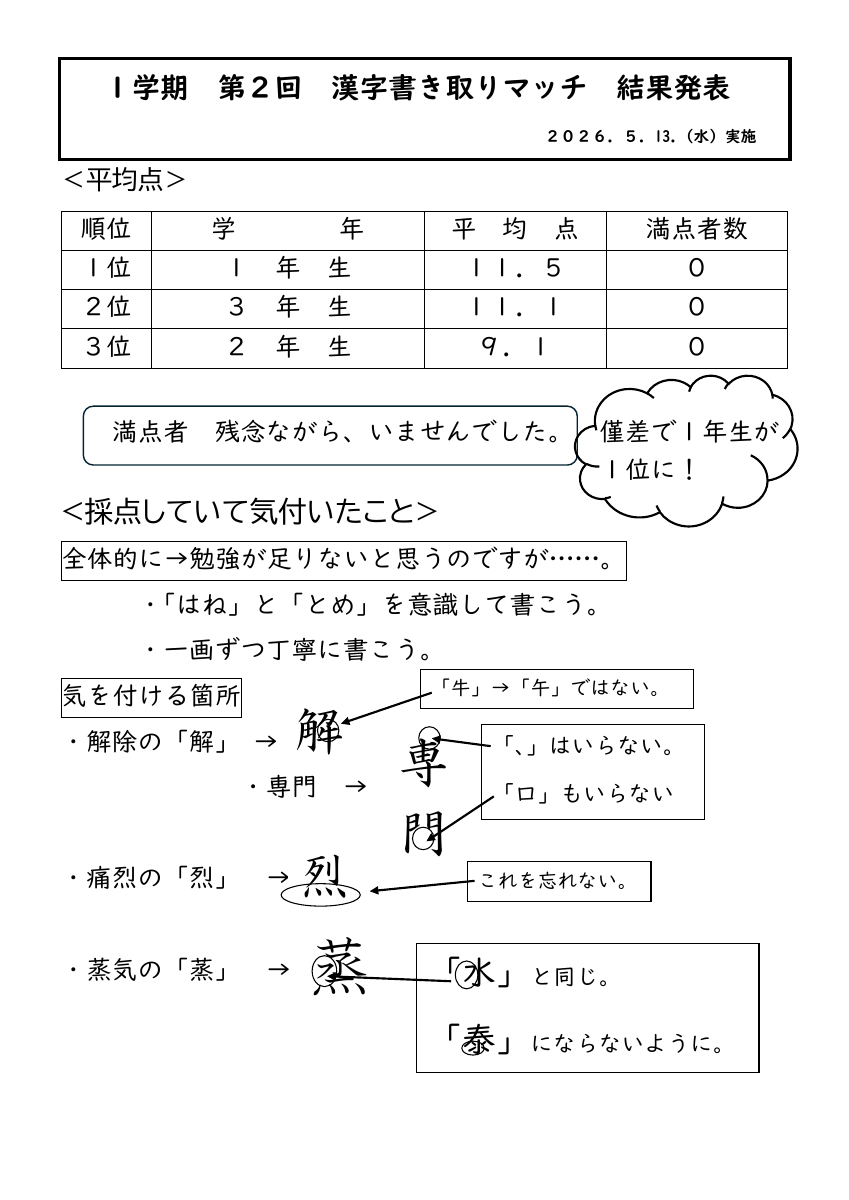 １学期　第２回　漢字書き取りマッチ　結果発表
２０２６．５．13．（水）実施
＜平均点＞
順位　学　年　平　均　点　満点者数
１位　１　年　生　１１．５　０
２位　３　年　生　１１．１　０
３位　２　年　生　９．１　０
満点者　残念ながら、いませんでした。
僅差で１年生が
１位に！
＜採点していて気付いたこと＞
全体的に→勉強が足りないと思うのですが……。
・「はね」と「とめ」を意識して書こう。
・一画ずつ丁寧に書こう。
気を付ける箇所
「牛」→「午」ではない。
・解除の「解」　→　解
・専門　→　専
「、」はいらない。
「口」もいらない
門
・痛烈の「烈」　→　烈
これを忘れない。
・蒸気の「蒸」　→　蒸
「水」と同じ。
「泰」にならないように。